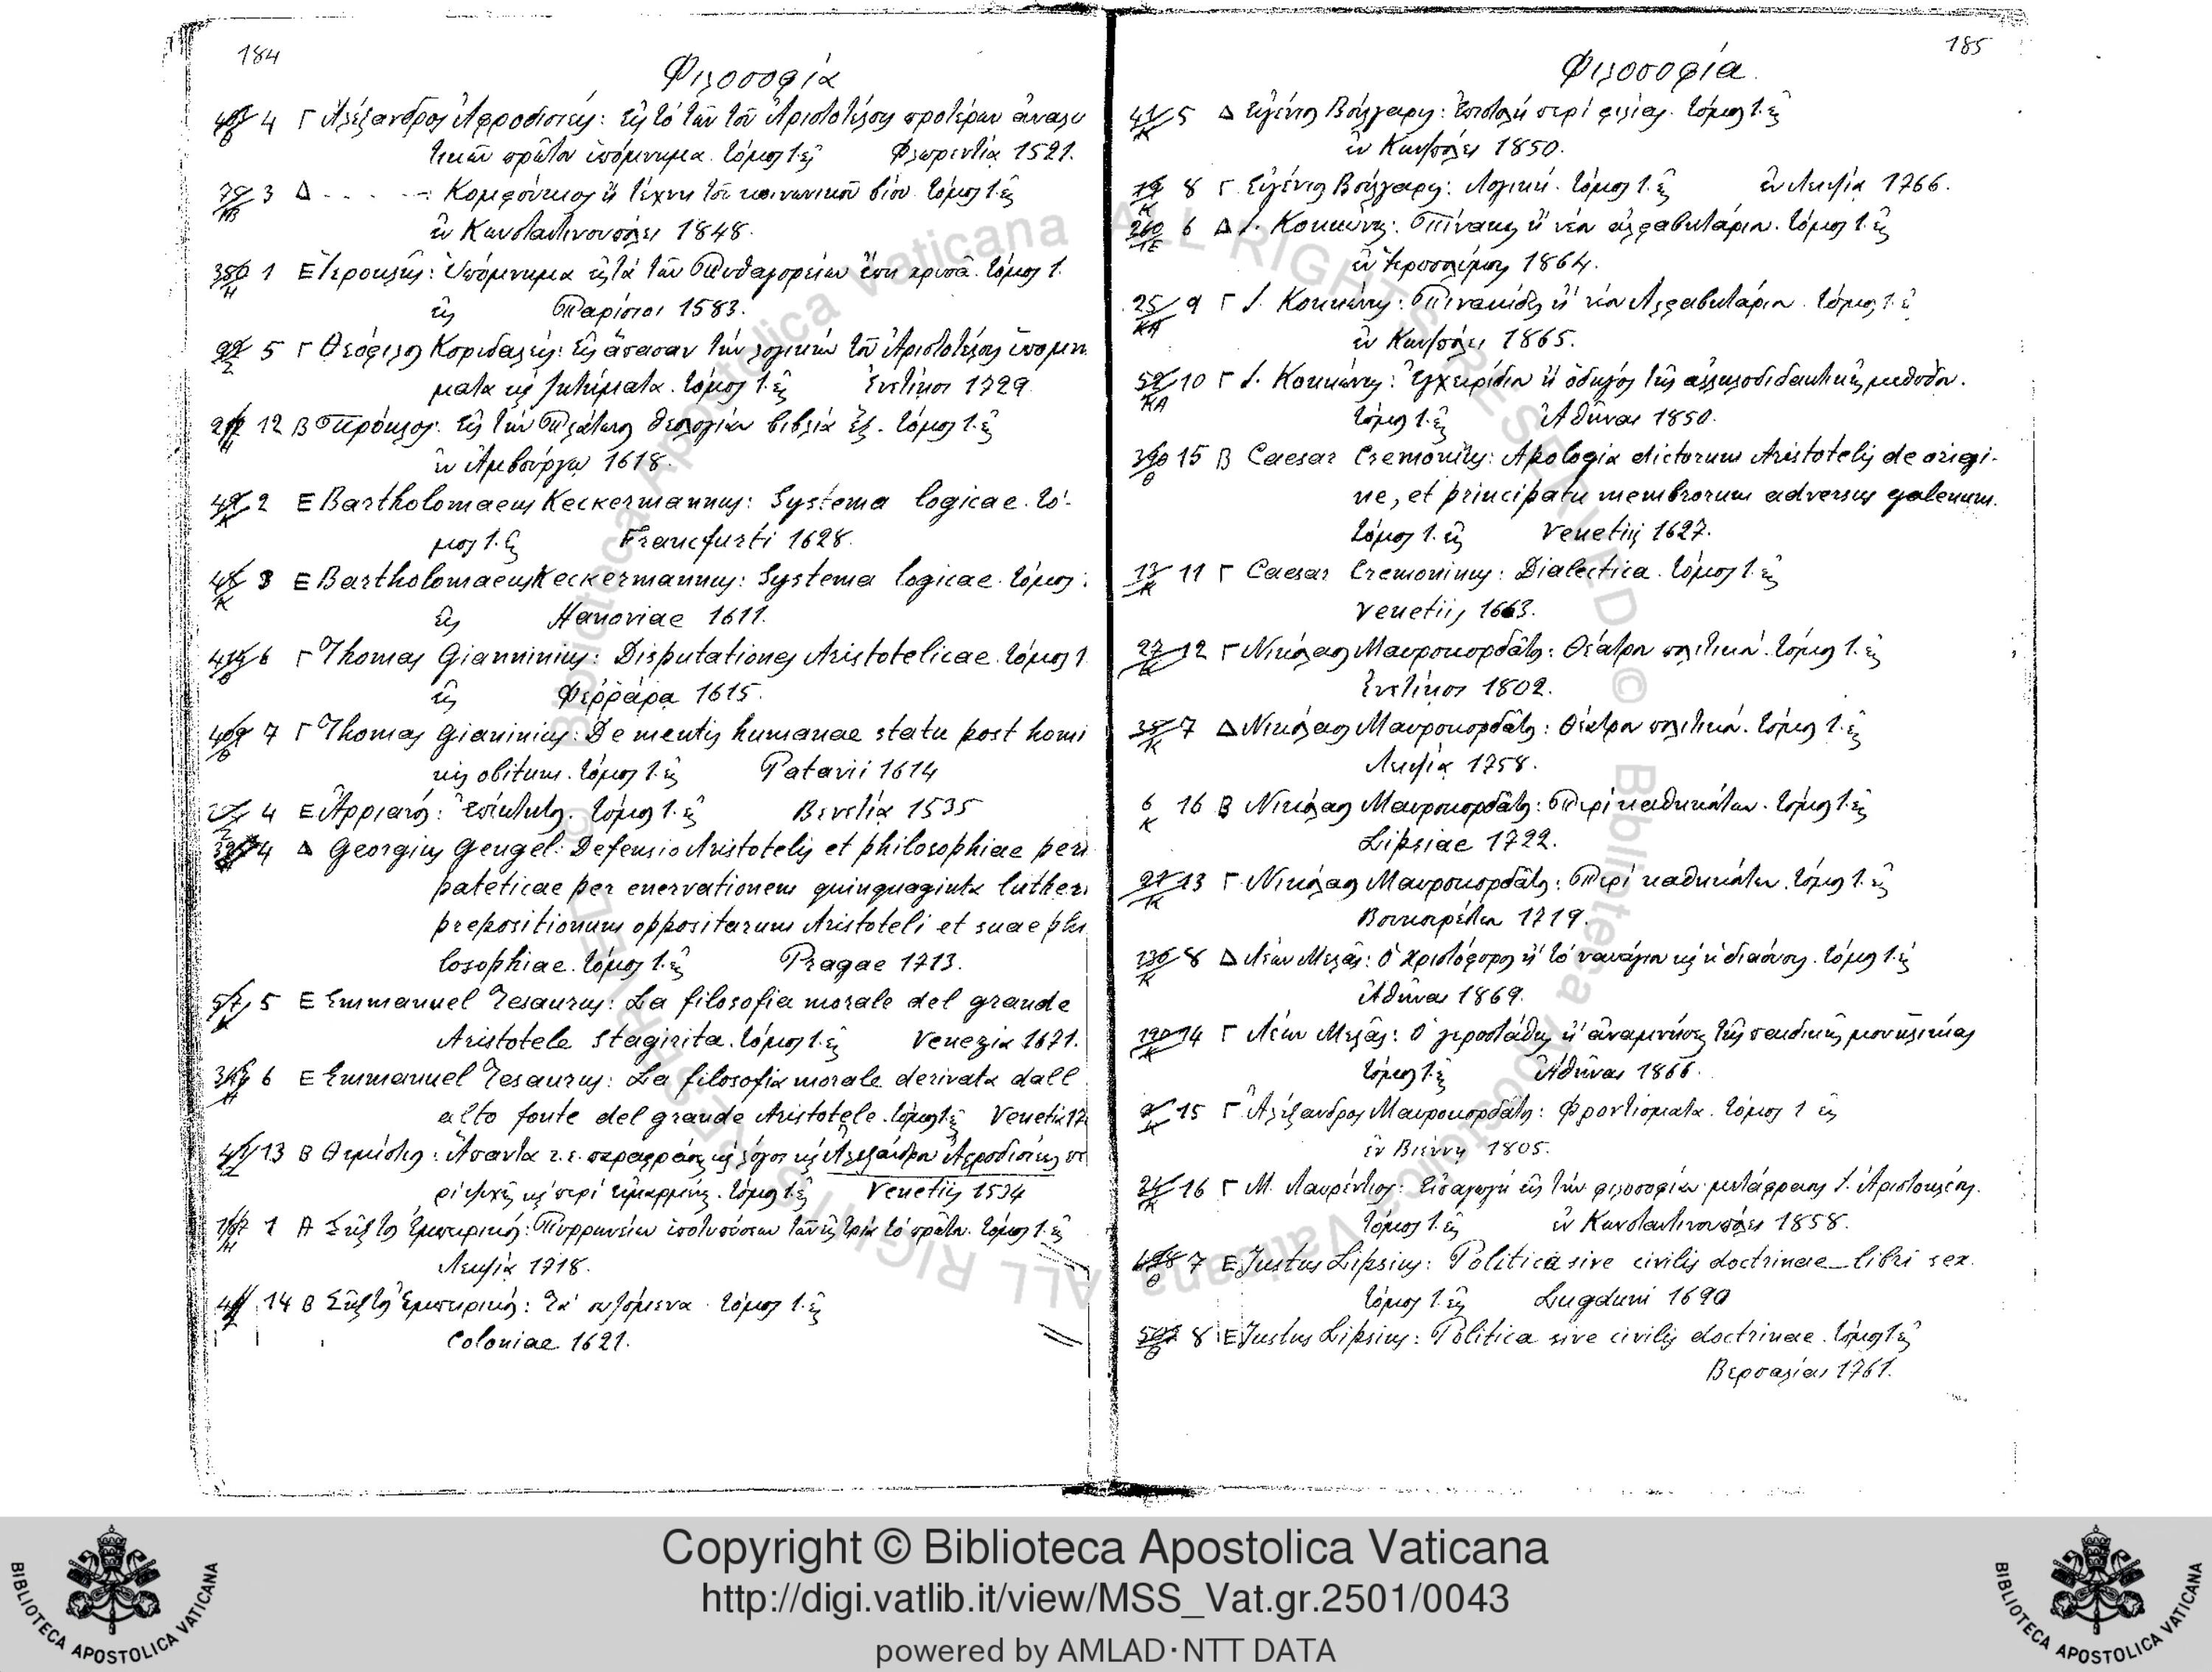 184
Φιλοσοφία
4 Γ Ἀλέξανδρος Ἀφροδισιεύς: Εἰς τὸ τῶν τοῦ Ἀριστοτέλους προτέρων ἀναλυ
τικῶν πρῶτον ὑπόμνημα. τόμος 1. εἷς Φλωρεντία 1521.
3 Δ . . . . . Κομφούκιος ἢ τέχνη τοῦ κοινωνικοῦ βίου. τόμος 1. εἷς
ἐν Κωνσταντινουπόλει 1848.
1 Ε Ἱεροκλῆς: Ὑπόμνημα εἰς τὰ τῶν Πυθαγορείων ἔπη χρυσᾶ. τόμος 1.
εἷς Παρίσιοι 1583.
5 Γ Θεόφιλος Κορυδαλεύς: Εἰς ἅπασαν τὴν λογικὴν τοῦ Ἀριστοτέλους ὑπομνή
ματα καὶ ζητήματα. τόμος 1. εἷς Ἐνετίησι 1729.
12 Β Πρόκλος: Εἰς τὴν Πλάτωνος θεολογίαν βιβλία ἕξ. τόμος 1. εἷς
ἐν Ἀμβούργῳ 1618.
2 Ε Bartholomaeus Keckermannus: Systema logicae. τό-
μος 1. εἷς Francfurti 1628.
3 Ε Bartholomaeus Keckermannus: Systema logicae. τόμος
εἷς Hanoviae 1611.
6 Γ Thomas Gianninius: Disputationes Aristotelicae. τόμος 1
εἷς Φερράρα 1615.
7 Γ Thomas Gianinius: De mentis humanae statu post homi
nis obitum. τόμος 1. εἷς Patavii 1614
4 Ε Ἀρριανός: Ἐπίκτητος. τόμος 1. εἷς Βενετία 1535
4 Δ Georgius Gengel: Defensio Aristotelis et philosophiae peri
pateticae per enervationem quinquaginta lutheri
prepositionum oppositarum Aristoteli et suae phi
losophiae. τόμος 1. εἷς Pragae 1713.
5 Ε Emmanuel Tesaurus: La filosofia morale del grande
Aristotele Stagirita. τόμος 1. εἷς Venezia 1671.
6 Ε Emmanuel Tesaurus: La filosofia morale derivata dall
alto fonte del grande Aristotele. τόμος 1. εἷς Venetia 17
13 Β Θεμίστιος: Ἅπαντα τ.ἔ. παραφράσεις καὶ λόγοι καὶ Ἀλεξάνδρου Ἀφροδισιέως πε
ρὶ ψυχῆς καὶ περὶ εἱμαρμένης. τόμος 1. εἷς Venetiis 1534
1 Α Σέξτος Ἐμπειρικός: Πυρρωνείων ὑποτυπώσεων τῶν εἰς τρία τὸ πρῶτον. τόμος 1. εἷς
Λειψία 1718.
14 Β Σέξτος Ἐμπειρικός: Τὰ σωζόμενα. τόμος 1. εἷς
Coloniae 1621.
185
Φιλοσοφία
5 Δ Εὐγένιος Βούλγαρις: Ἐπιστολὴ περὶ φιλίας. τόμος 1. εἷς
ἐν Κων/πόλει 1850.
8 Γ Εὐγένιος Βούλγαρις: Λογική. τόμος 1. εἷς ἐν Λειψίᾳ 1766.
6 Δ Ι. Κοκκώνης: Πίνακες ἢ νέον ἀλφαβητάριον. τόμος 1. εἷς
ἐν Ἱεροσολύμοις 1864.
9 Γ Ι. Κοκκώνης: Πινακίδες ἢ νέον Ἀλφαβητάριον. τόμος 1. εἷς
ἐν Κων/πόλει 1865.
10 Γ Ι. Κοκκώνης: Ἐγχειρίδιον ἢ ὁδηγὸς τῆς ἀλληλοδιδακτικῆς μεθόδου.
τόμος 1. εἷς Ἀθῆναι 1850.
15 Β Caesar Cremonius: Apologia dictorum Aristotelis de origi-
ne, et principatu membrorum adversus galenum.
τόμος 1. εἷς Venetiis 1627.
11 Γ Caesar Cremoninus: Dialectica. τόμος 1. εἷς
Venetiis 1663.
12 Γ Νικόλαος Μαυροκορδάτος: Θέατρον πολιτικόν. τόμος 1. εἷς
Ἐνετίησι 1802.
7 Δ Νικόλαος Μαυροκορδάτος: Θέατρον πολιτικόν. τόμος 1. εἷς
Λειψία 1758.
6 Κ 16 Β Νικόλαος Μαυροκορδάτος: Περὶ καθηκόντων. τόμος 1. εἷς
Lipsiae 1722.
13 Γ Νικόλαος Μαυροκορδάτος: Περὶ καθηκόντων. τόμος 1. εἷς
Βουκουρέστιον 1719.
8 Δ Λέων Μελᾶς: Ὁ Χριστόφορος ἢ τὸ ναυάγιον καὶ ἡ διάσωσις. τόμος 1. εἷς
Ἀθῆναι 1869.
14 Γ Λέων Μελᾶς: Ὁ γεροστάθης ἢ ἀναμνήσεις τῆς παιδικῆς μου ἡλικίας
τόμος 1. εἷς Ἀθῆναι 1866.
15 Γ Ἀλέξανδρος Μαυροκορδάτος: Φροντίσματα. τόμος 1 εἷς
ἐν Βιέννῃ 1805.
16 Γ Μ. Λαυρέντιος: Εἰσαγωγὴ εἰς τὴν φιλοσοφίαν μετάφρασις Ι. Ἀριστοκλέους.
τόμος 1. εἷς ἐν Κωνσταντινουπόλει 1858.
7 Ε Justus Lipsius: Politica sive civilis doctrinae libri sex.
τόμος 1. εἷς Lugduni 1690
8 Ε Justus Lipsius: Politica sive civilis doctrinae. τόμος 1. εἷς
Βερσαλίαι 1761.
Copyright © Biblioteca Apostolica Vaticana
http://digi.vatlib.it/view/MSS_Vat.gr.2501/0043
powered by AMLAD·NTT DATA
BIBLIOTECA APOSTOLICA VATICANA
BIBLIOTECA APOSTOLICA VATICANA